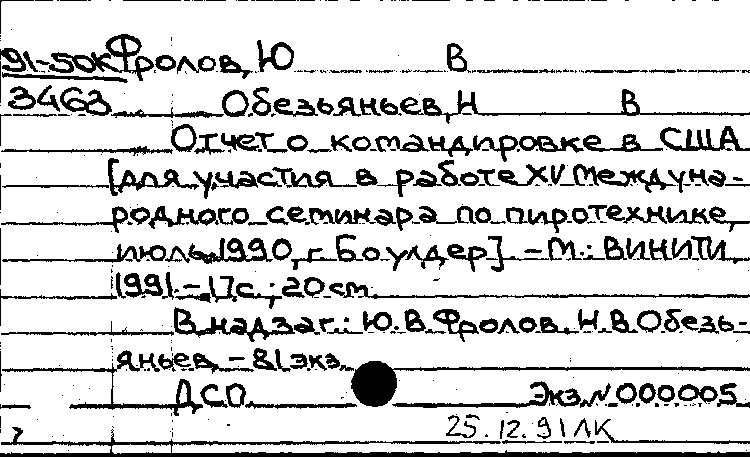 91-50К Фролов, Ю В
3463 Обезьяньев, Н В
Отчет о командировке в США
[для участия в работе XV Междуна-
родного семинара по пиротехнике,
июль 1990, г. Боулдер]. – М.: ВИНИТИ,
1991. – 17с.; 20 см.
В надзаг.: Ю.В. Фролов, Н.В. Обезь-
яньев. – 81 экз.
ДСП. Экз. N 000005
25.12.91 ЛК